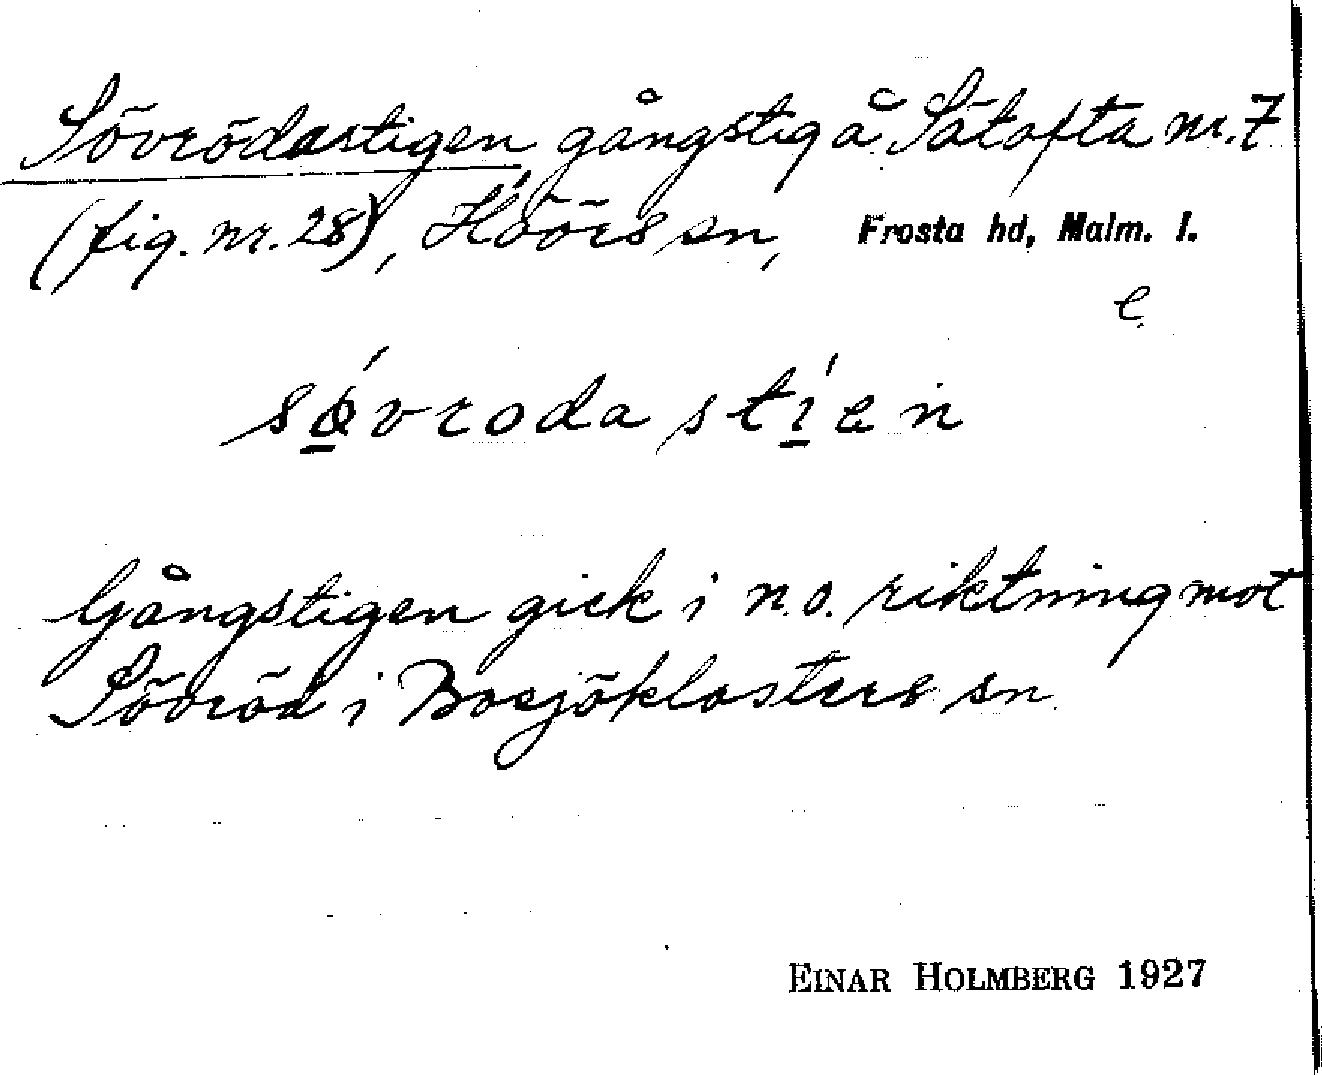 Sövrödastigen gångstig å Sätofta nr. 7
(fig. nr. 28), Höörs sn, Frosta hd, Malm. l.
e.
sǿvrodastíen
Gångstigen gick i n.o. riktning mot
Sövröd i Bosjöklosters sn.
EINAR HOLMBERG 1927